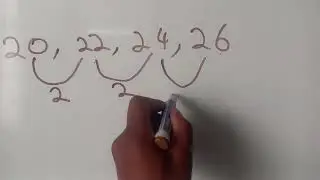 20, 22, 24, 26
2 2